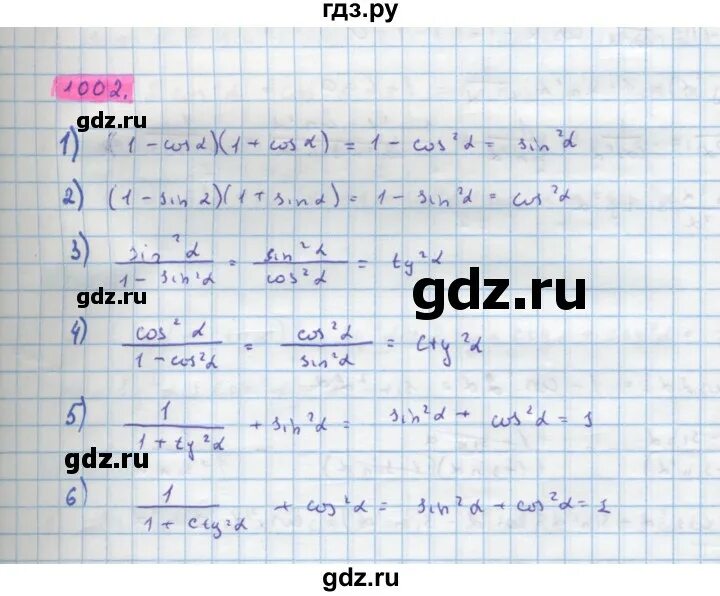 гдз.ру
1002.
gdz.ru
1) (1 - cos α)(1 + cos α) = 1 - cos²α = sin²α
2) (1 - sin α)(1 + sin α) = 1 - sin²α = cos²α
3) sin²α / 1 - sin²α = sin²α / cos²α = tg²α
gdz.ru
gdz.ru
4) cos²α / 1 - cos²α = cos²α / sin²α = ctg²α
5) 1 / 1 + tg²α + sin²α = sin²α + cos²α = 1
gdz.ru
6) 1 / 1 + ctg²α + cos²α = sin²α + cos²α = 1
gdz.ru